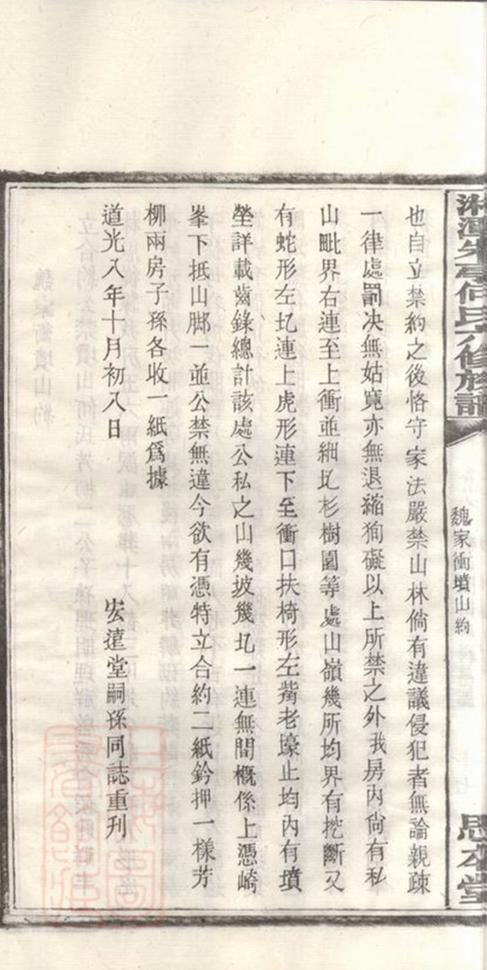 湘潭朱亭何氏六修族譜
魏家衝墳山約
思本堂
也自立禁約之後恪守家法嚴禁山林倘有違議侵犯者無論親疎
一律處罰决無姑寬亦無退縮狥礙以上所禁之外我房內尙有私
山毗界右連至上衝並細圠杉樹園等處山嶺幾所均界有挖斷又
有蛇形左圠連上虎形連下至衝口扶椅形左觜老壕止均內有墳
塋詳載齒錄總計該處公私之山幾坡幾圠一連無間概係上憑崎
峯下抵山脚一並公禁無違今欲有憑特立合約二紙鈐押一樣芳
柳兩房子孫各收一紙爲據
道光八年十月初八日
宏遠堂嗣孫同誌重刊